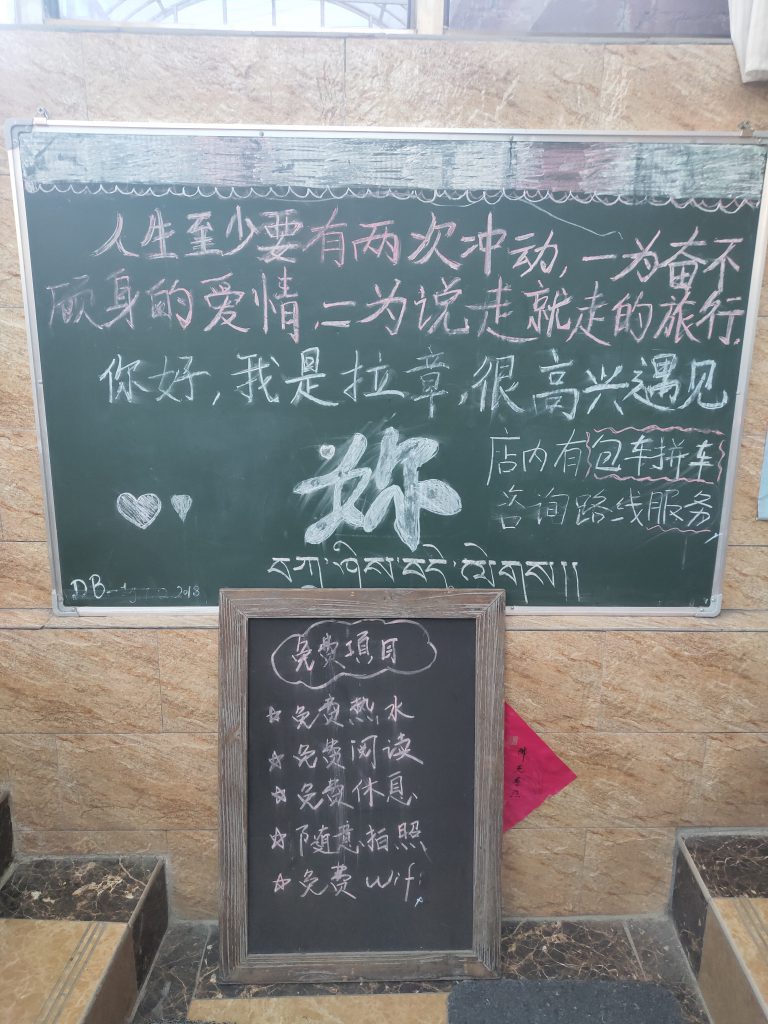 人生至少要有两次冲动,一为奋不
顾身的爱情,二为说走就走的旅行.
你好,我是拉章,很高兴遇见
妳
店内有包车拼车
咨询路线服务,
བཀྲ་ཤིས་བདེ་ལེགས།།
DB
2018
免费項目
☆免费熱水
☆免费阅读
☆免费休息
☆随意拍照
☆免费wifi